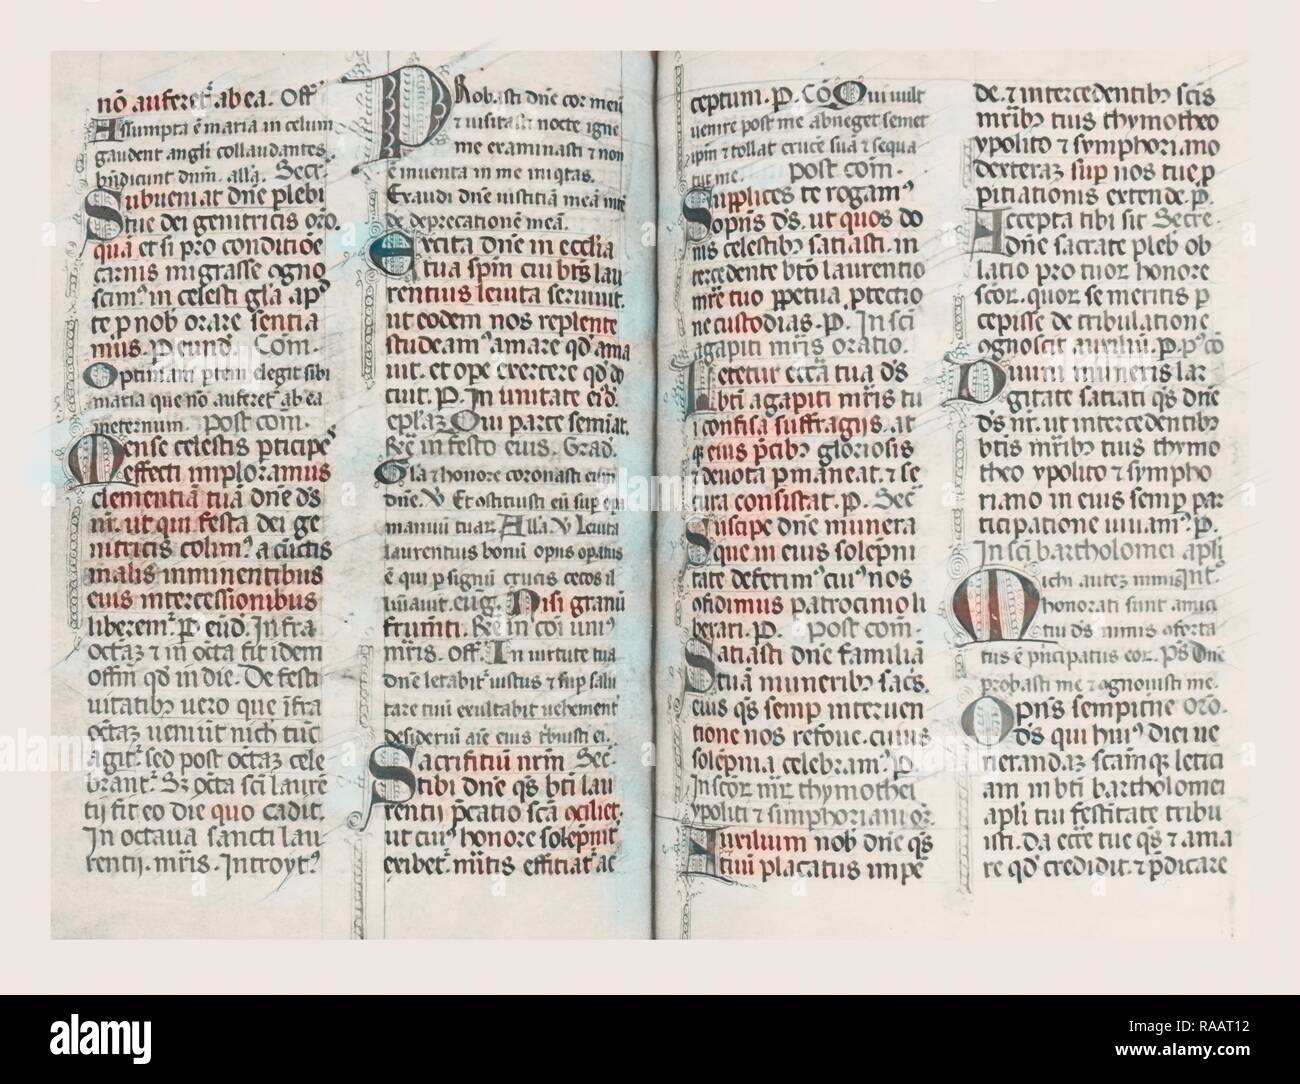 nō auferet' ab ea. Off'
Assumpta ē maria in celum
gaudent angli collaudantes
bn̄dicunt dnm̄. alla. Secr̄.
Subueniat dn̄e plebi
tue dei genitricis oro.
quā et si pro conditiōe
carnis migrasse ogno
scim' in celesti gl̄a ap'
te p nob orare sentia
mus. P eund̄. Com̄.
Optimam ptem elegit sibi
maria que nō auferet' ab ea
in eternum. Post com̄.
Mense celestis pticipes
effecti imploramus
clementiā tuā dn̄e d̄s
nr̄. ut qui festa dei ge
nitricis colim' a cūctis
malis imminentibus
eius intercessionibus
liberem'. P eund̄. Infra
octaꝫ ⁊ in octa fit idem
offm̄ qd̄ in die. De festi
uitatibꝫ uero que īfra
octaꝫ ueniūt nich tūc
agit'. sed post octaꝫ cele
brant'. Sꝫ octa sc̄i laurē
tij fit eo die quo cadit.
In octaua sancti lau
rentij. mr̄is. Introyt'
Probasti dn̄e cor meū
⁊ uisitasti nocte igne
me examinasti ⁊ non
ē inuenta in me iniqtas.
Exaudi dn̄e iustitiā meā
deprecationē meā.
Excita dn̄e in ecclia
tua spm̄ cui bt̄s lau
rentius leuita seruiuit.
ut eodem nos replente
studeam' amare qd̄ ama
uit. et opere exercere qd̄ do
cuit. P. In unitate eid̄.
eplaꝫ Qui parce seminat.
Re in festo eius. Grad̄.
Gla ⁊ honore coronasti eum
dn̄e. V Et ostituisti eū sup opa
manuū tuaꝝ. Alla V Leuita
laurentius bonū opus opatus
ē qui p signū crucis cecos il
luīauit. eug̅. Nisi granū
frumti. Re in com̄ uni'
mr̄is. off. In uirtute tua
dn̄e letabit' iustus ⁊ sup salu
tare tuū exultabit uehement'
desideriū aīe eius tbuisti ei.
Sacrifitiū nr̄m Sec̄
tibi dn̄e qs̄ bt̄i lau
rentii p̄catio sc̄a ociliet.
ut cui' honore solepnit'
exibet'. mitis efficiat' ac
ceptum. P. Cō Qui uult
uenire post me abneget semet
ipm̄ ⁊ tollat crucē suā ⁊ sequa
tur me. Post com̄.
Supplices te rogam'
opn̄s d̄s. ut quos do
nis celestibꝫ satiasti. in
tercedente bt̄o laurentio
mr̄e tuo ppetua ptectio
ne custodias. P. In sc̄i
agapiti mr̄is oratio.
Letetur eccā tua d̄s
bt̄i agapiti mr̄is tu
i confisa suffragijs. at
q̄ eius pc̄ibꝫ gloriosis
⁊ deuota pmaneat. ⁊ se
cura consistat. P. Sec̄
Suscipe dn̄e munera
que in eius solēpni
tate deferim' cui' nos
ofidimus patrocinio li
berari. P. Post com̄.
Satiasti dn̄e familiā
tuā muneribꝫ sacs̄.
eius qs̄ semp interuen
tione nos refoue. cuius
solēpnia celebram'. P.
In sc̄oꝝ mr̄ꝝ thymothei
ypoliti ⁊ simphoriani oꝝ.
Auxilium nob dn̄e qs̄
tuū placatus impē
de. ⁊ intercedentibꝫ sc̄is
mr̄ibꝫ tuis thymotheo
ypolito ⁊ symphoriano
dexteraꝫ sup nos tue p
pitiationis extende. P.
Accepta tibi sit Secre.
dn̄e sacrate pleb ob
latio pro tuoꝝ honore
sc̄oꝝ. quoꝝ se meritis p
cepisse de tribulatione
ognoscit auxiliū. P. Pꝰ cō
Diuini muneris lar
gitate satiati qs̄ dn̄e
d̄s nr̄. ut intercedentibꝫ
btis mr̄ibꝫ tuis thymo
theo ypolito ⁊ sympho
riano in eius semp par
ticipatione uiuam'. P.
In sc̄i bartholomei apl̄i
Michi auteꝫ nimis Int'.
honorati sunt amici
tui d̄s nimis oforta
tus ē pncipatus eoꝝ. Ps̄ Dn̄e
probasti me ⁊ ognouisti me.
Opn̄s sempitne oro.
d̄s qui hui' diei ue
nerandaꝫ scāmqꝫ letici
am in bt̄i bartholomei
apl̄i tui festitate tribu
isti. da ecc̄e tue qs̄ ⁊ ama
re qd̄ credidit. ⁊ pdicare
alamy
Image ID: RAAT12
www.alamy.com